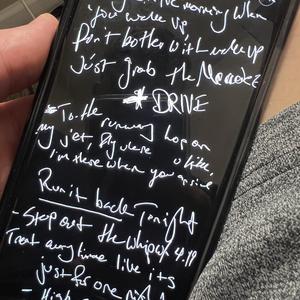 morning when
you wake up,
Don't bother with make up
just grab the
* DRIVE
- To the runway hop on
my jet, fly where
I'm there when you arrive
Run it back Tonight
- Step out the whip at 4.19
Treat every time like its
just for one night
- High